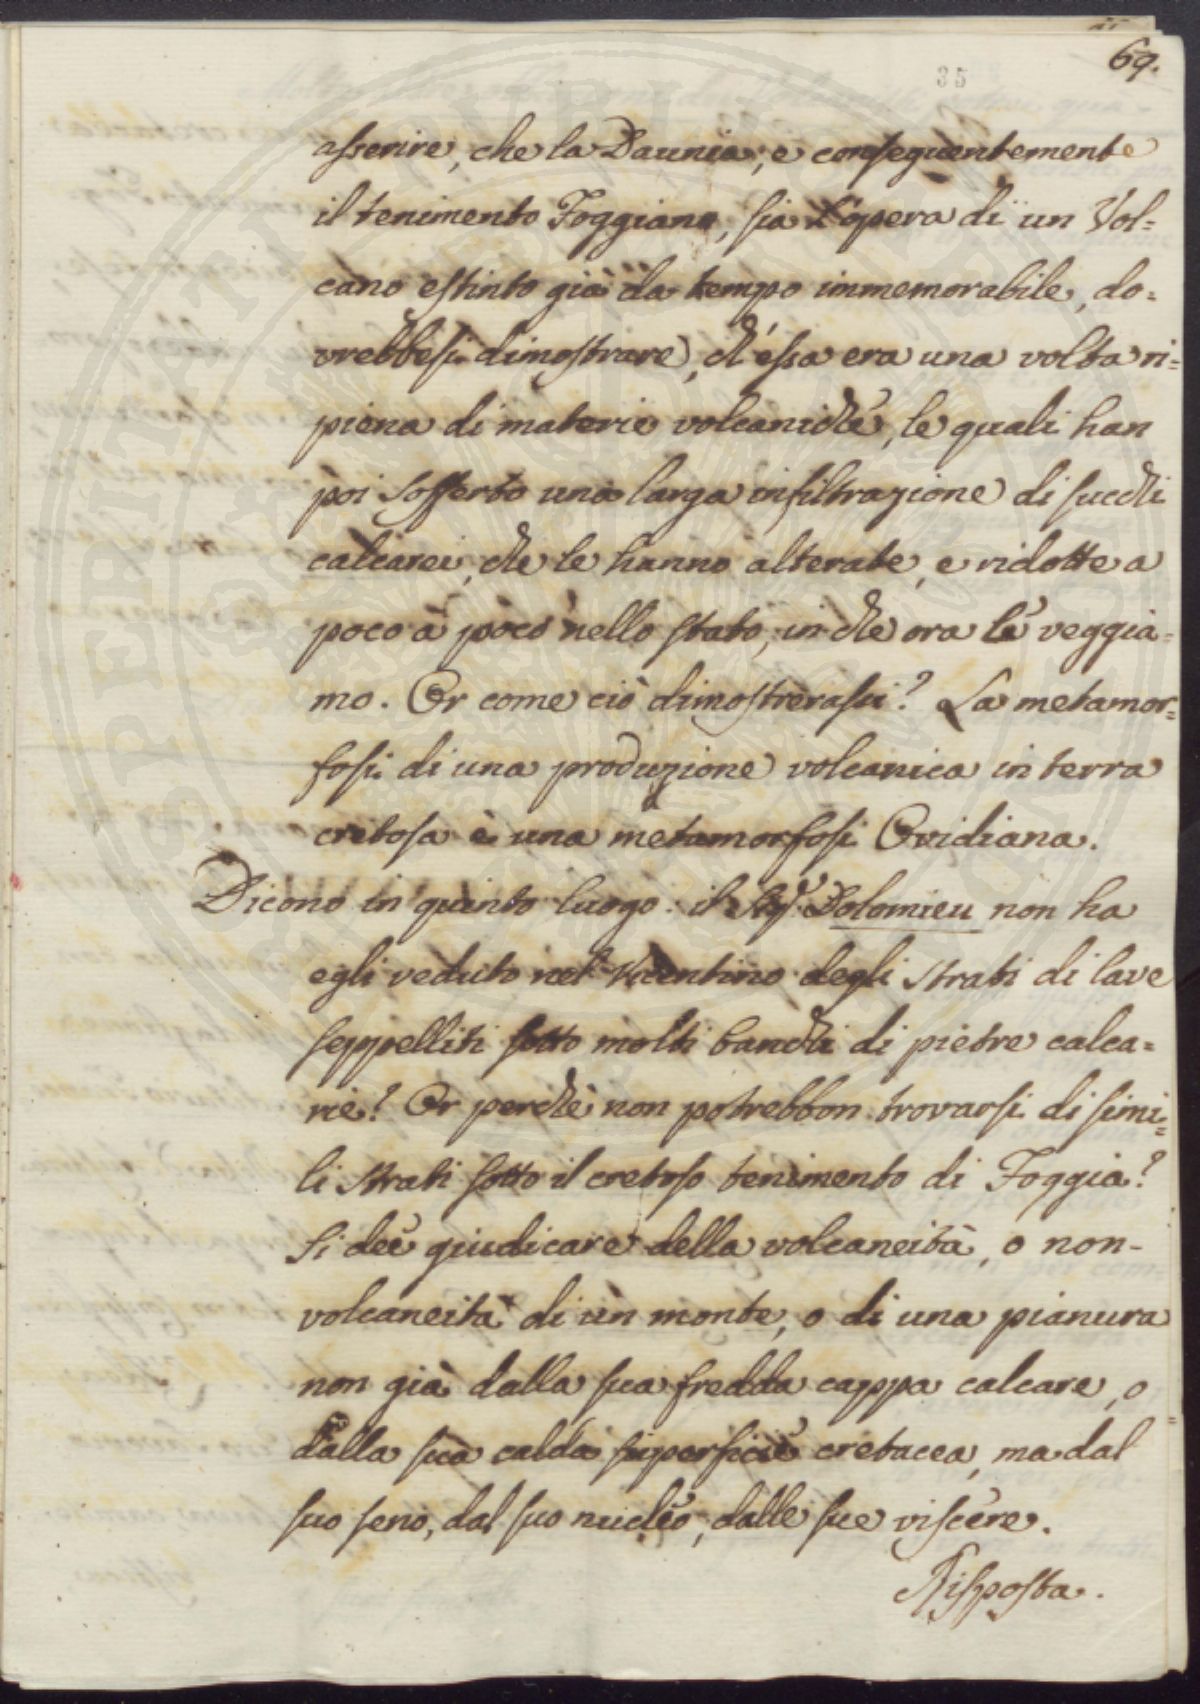 69.
35
asserire, che la Daunia, e conseguentemente
il tenimento Foggiano, sia l'opera di un Vol=
cano estinto già da tempo immemorabile, do=
vrebbesi dimostrare, ch'essa era una volta ri=
piena di materie volcaniche, le quali han
poi sofferto una larga infiltrazione di succhi
calcarei, che le hanno alterate, e ridotte a
poco a poco nello stato, in che ora le veggia=
mo. Or come ciò dimostrerassi? La metamor=
fosi di una produzione volcanica in terra
cretosa è una metamorfosi Ovidiana.
Dicono in quinto luogo: il Sigr. Dolomieu non ha
egli veduto nel Vicentino degli strati di lave
seppelliti sotto molti banchi di pietre calca=
rie? Or perchè non potrebbon trovarsi di simi=
li strati sotto il cretoso tenimento di Foggia?
Si dee giudicare della volcaneità, o non-
volcaneità di un monte, o di una pianura
non già dalla sua fredda cappa calcare, o
dalla sua calda superficie cretacea, ma dal
suo seno, dal suo nucleo, dalle sue viscere.
Risposta.